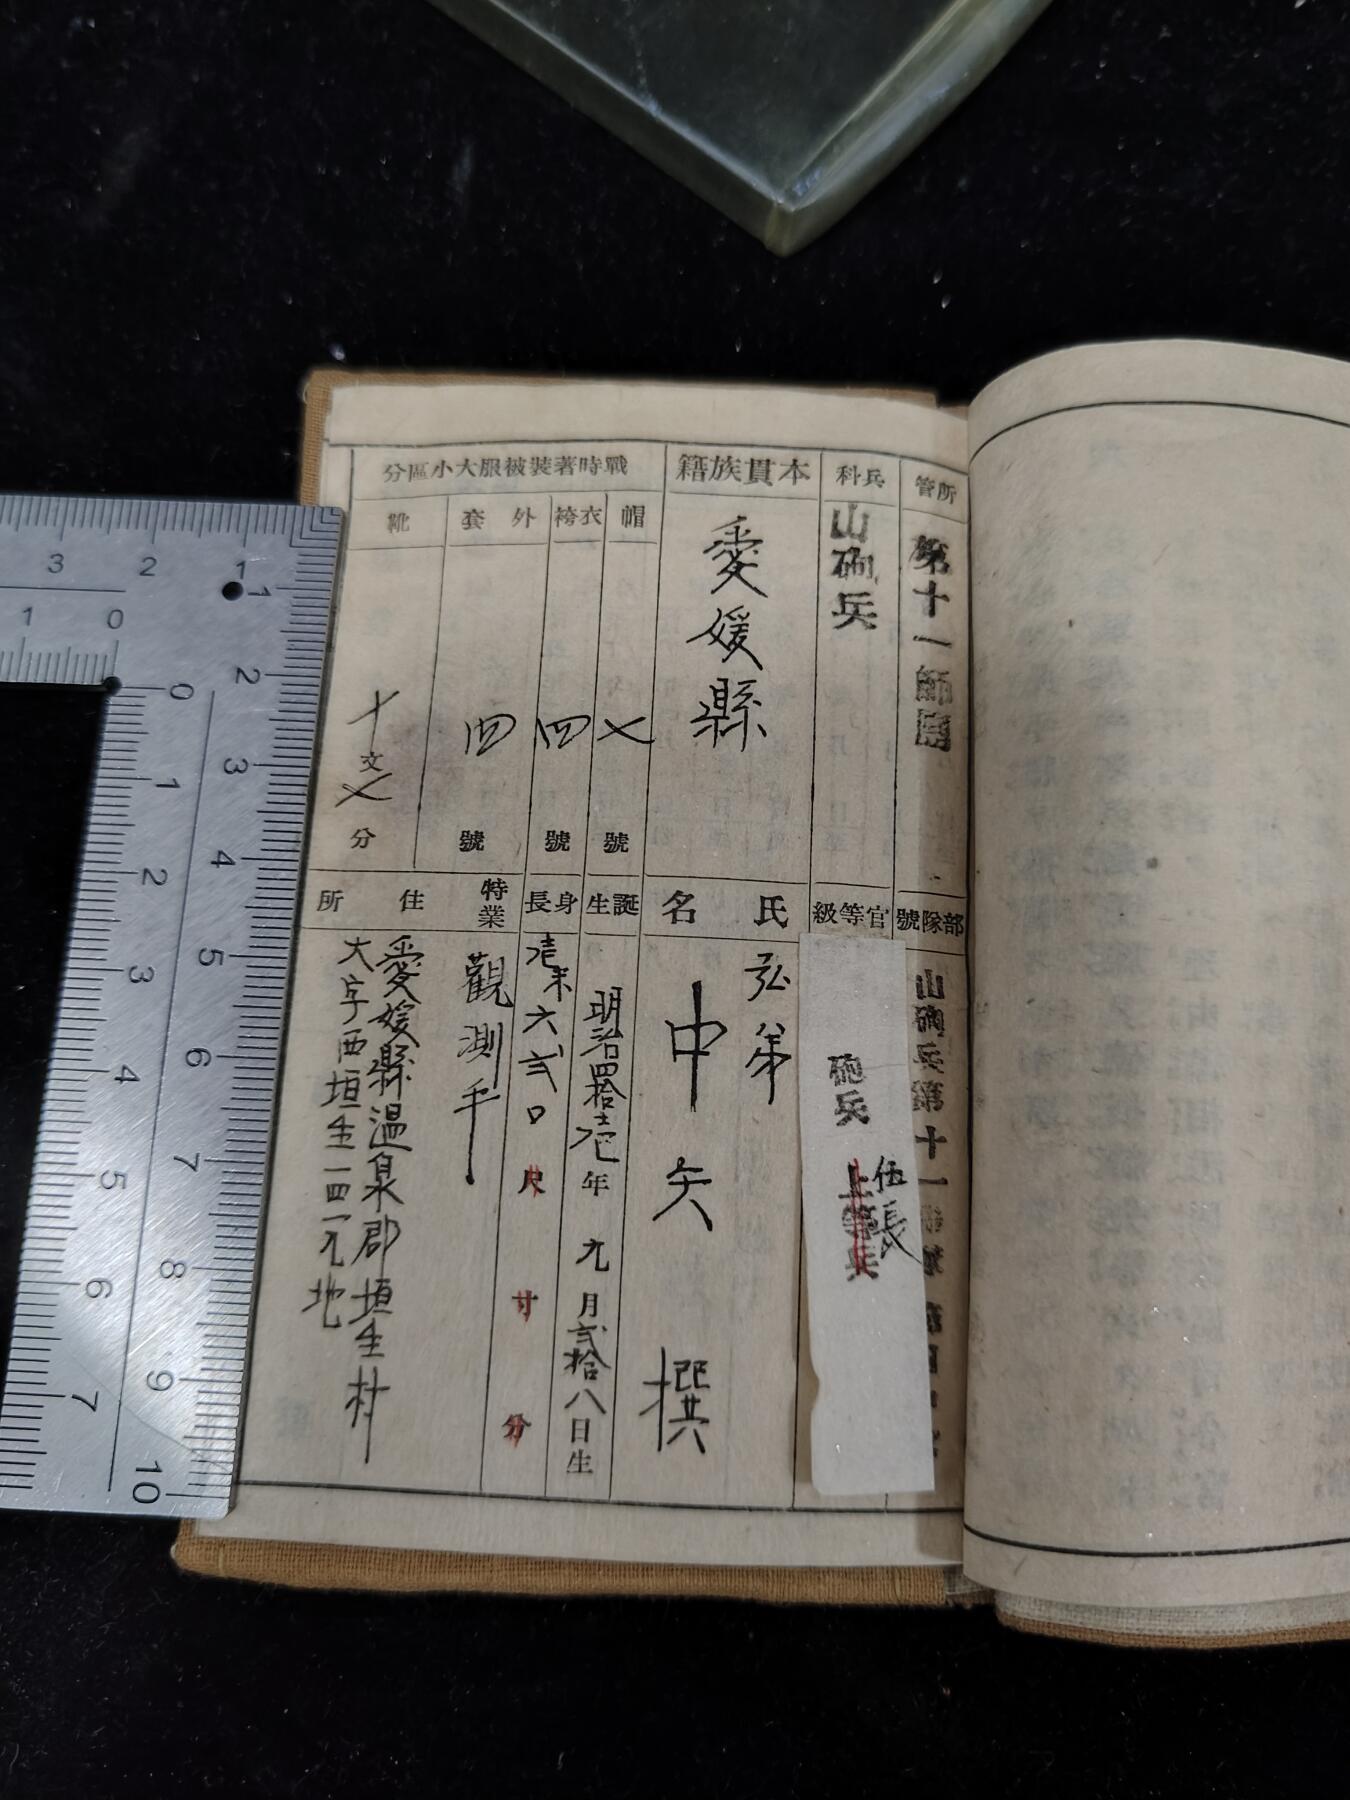 所管
第十一師團
部隊號
山砲兵第十一聯隊第
兵科
山砲兵
官等級
砲兵
上等兵
伍長
本貫族籍
愛媛縣
氏名
弘弟
中矢撰
戰時著裝被服大小區分
帽
七號
衣袴
四號
外套
四號
靴
十文七分
誕生
明治四拾壱年九月弐拾八日生
身長
壱米六弐〇
尺寸分
特業
觀測手
住所
愛媛縣温泉郡垣生村
大字西垣生一四一九地
3 2 1
1 0
1 2 3 4 5 6 7 8 9 10
0 1 2 3 4 5 6 7